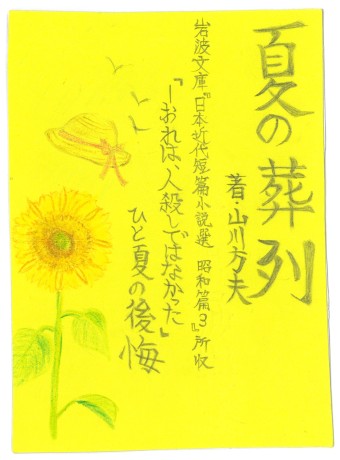 夏の葬列
著・山川方夫
岩波文庫『日本近代短篇小説選　昭和篇3』所収
「―おれは、人殺しではなかった」
ひと夏の後悔